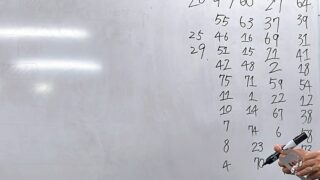 55 63 37 39
25 46 16 69 31
29 51 15 21 41
42 48 2 18
75 71 59 54
11 1 22 12
10 14 67 38
7 74 6
8 23
4 70